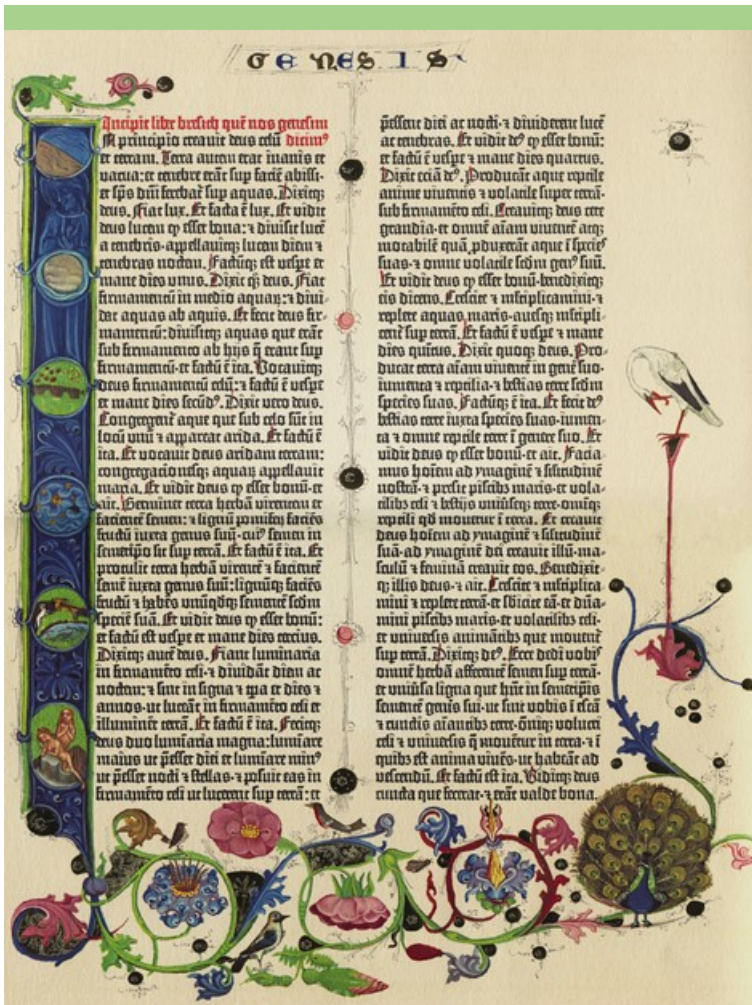 GENESIS
Incipit liber bresith quē nos genesim
In principio creavit deus celū dicim⁹
et terram. Terra autem erat inanis et
vacua: et tenebre erāt sup faciē abissi·
et sp̄s dn̄i ferebat̄ sup aquas. Dixitq;
deus. Fiat lux. Et facta ē lux. Et vidit
deus lucem ꝙ esset bona: ⁊ divisit lucē
a tenebris·appellavitq; lucem diem ⁊
tenebras noctem. Factūq; est vespe et
mane dies unus. Dixit q̄; deus. Fiat
firmamentū in medio aquaꝝ: ⁊ divi-
dat aquas ab aquis. Et fecit deus fir-
mamentū: divisitq; aquas que erāt
sub firmamento ab hijs q̄ erant sup
firmamentū·et factū ē ita. Vocavitq;
deus firmamentū celū: ⁊ factū ē vespe
et mane dies secūd⁹. Dixit vero deus.
Congregent̄ aque que sub celo sūt in
locū unū ⁊ appareat arida. Et factū ē
ita. Et vocavit deus aridam terram:
congregacionesq; aquaꝝ appellavit
maria. Et vidit deus ꝙ esset bonū·et
ait. Germinet terra herbā virentem et
facientē semen: ⁊ lignū pomifeꝝ faciēs
fructū iuxta genus suū·cui⁹ semen in
semetipo sit sup terrā. Et factū ē ita. Et
protulit terra herbā virentē ⁊ facientē
semē iuxta genus suū: lignūq; faciēs
fructū ⁊ habēs unūqdq; sementē scdm
speciē suā. Et vidit deus ꝙ esset bonū:
et factū est vespe et mane dies tercius.
Dixitq; autē deus. Fiant luminaria
in firmamēto celi·⁊ dividāt diem ac
noctem: ⁊ sint in signa ⁊ tp̄a et dies ⁊
annos·ut luceāt in firmamēto celi et
illuminēt terrā. Et factū ē ita. Fecitq;
deus duo luminaria magna: luminare
maius ut p̄esset diei et luminare min⁹
ut p̄esset nocti ⁊ stellas·⁊ posuit eas in
firmamēto celi ut lucerent sup terrā: et
p̄essent diei ac nocti·⁊ dividerent lucē
ac tenebras. Et vidit de⁹ ꝙ esset bonū:
et factū ē vespe ⁊ mane dies quartus.
Dixit eciā de⁹. Producāt aque reptile
anime viventis ⁊ volatile super terrā·
sub firmamēto celi. Creavitq; deus cete
grandia·et omnē aīam viventē atq;
motabilē quā pduxerāt aque ī species
suas·⁊ omne volatile scdm gen⁹ suū.
Et vidit deus ꝙ esset bonū·benedixitq;
eis dicens. Crescite ⁊ mltiplicamini·⁊
replete aquas maris·avesq; mltipli-
cent̄ sup terrā. Et factū ē vespe ⁊ mane
dies quītus. Dixit quoq; deus. Pro-
ducat terra aīam viventē in genē suo·
iumenta ⁊ reptilia·⁊ bestias terre scdm
species suas. Factūq; ē ita. Et fecit de⁹
bestias terre iuxta species suas·iumen-
ta ⁊ omne reptile terre ī genere suo. Et
vidit deus ꝙ esset bonū·et ait. Facia-
mus hoīem ad ymaginē ⁊ similitudinē
nostrā·⁊ presit piscibȝ maris·et vola-
tilibȝ celi ⁊ bestijs univseq; terre·omniq;
reptili qd movetur ī terra. Et creavit
deus hoīem ad ymaginē ⁊ similitudinē
suā·ad ymaginē dei creavit illū·ma-
sculū ⁊ feminā creavit eos. Benedixit-
q; illis deus·⁊ ait. Crescite ⁊ mltiplica-
mini ⁊ replete terrā·et sbicite eā·et dn̄a-
mini piscibȝ maris·et volatilibȝ celi·
et universis animātibȝ que movent̄
sup terrā. Dixitq; de⁹. Ecce dedi vobis
omnē herbā afferentē semen sup terrā·
et univsa ligna que hn̄t in semetipis
sementē genēis sui·ut sint vobis ī escā
⁊ cunctis aīantibȝ terre·ōniq; volucri
celi ⁊ universis q̄ moventur in terra·⁊ ī
quibȝ est anima vivēs·ut habeāt ad
vescendū. Et factū est ita. Viditq; deus
cuncta que fecerat·⁊ erāt valde bona.